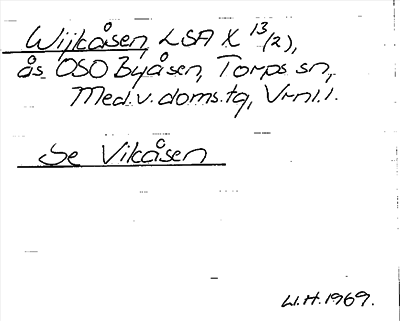 Wijkåsen, LSA X 13/(2),
ås OSO Byåsen, Torps sn,
Med.v.doms.tg, Vrnl.l.
Se Vikåsen
W.H.1969.